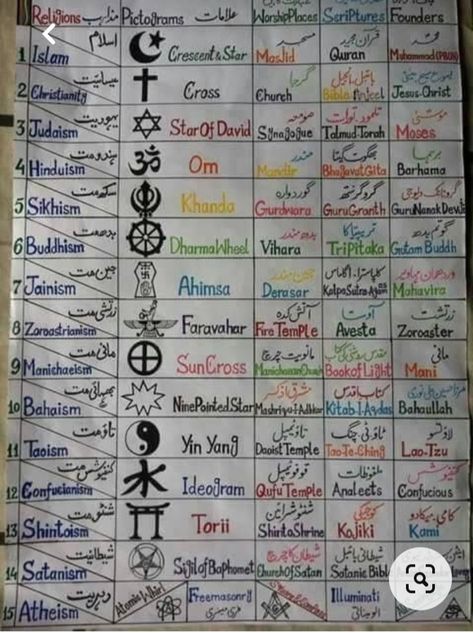 Religions مذاہب Pictograms علامات WorshipPlaces ScripTures Founders
اسلام مسجد قرآن مجید
1 Islam Crescent & Star Masjid Quran Muhammad (PBUH)
عیسائیت گرجا بائبل انجیل
2 Christianity Cross Church Bible Anjeel Jesus Christ
یہودیت صومعہ تلمود۔تورات موسیٰ
3 Judaism Star Of David Synagogue Talmud-Torah Moses
ہندومت مندر بھگوت گیتا برہما
4 Hinduism Om Mandir Bhagavat Gita Barhama
سکھ مت گوردوارہ گرو گرنتھ گرونانک دیو جی
5 Sikhism Khanda Gurdwara Guru Granth Guru Nanak Dev Ji
بدھ مت بدھ مندر تریپتاکا گوتم بدھ
6 Buddhism Dharma Wheel Vihara TriPitaka Gutam Buddh
جین مت جین مندر وردھمان مہاویر
7 Jainism Ahimsa Derasar Kalpa Sutra-Agam Mahavira
زرتشتی آتش کدہ اوستا زرتشت
8 Zoroastrianism Faravahar Fire Temple Avesta Zoroaster
مانی مت مانی
9 Manichaeism Sun Cross Manichaean Church Book of Light Mani
بہائی مت مشرق اذکار کتاب اقدس
10 Bahaism Nine Pointed Star Mashriqu-l-Adhkar Kitab I-Aqdas Bahaullah
تاؤ مت تاؤ ٹیمپل تاؤ تی چنگ لاؤتسو
11 Taoism Yin Yang Daoist Temple Tao-Te-Ching Lao-Tzu
کنفیوشس مت قوفو ٹیمپل ملفوظات کنفیوشس
12 Confucianism Ideogram Qufu Temple Analects Confucious
شنٹو مت شنٹو شرائن کوجیکی
13 Shintoism Torii Shinto Shrine Kojiki Kami
شیطانیت شیطان کا چرچ شیطانی بائبل
14 Satanism Sijil of Baphomet Church of Satan Satanic Bibl
دہریت Freemasonry Illuminati
15 Atheism Atomic Whirl فری میسنری